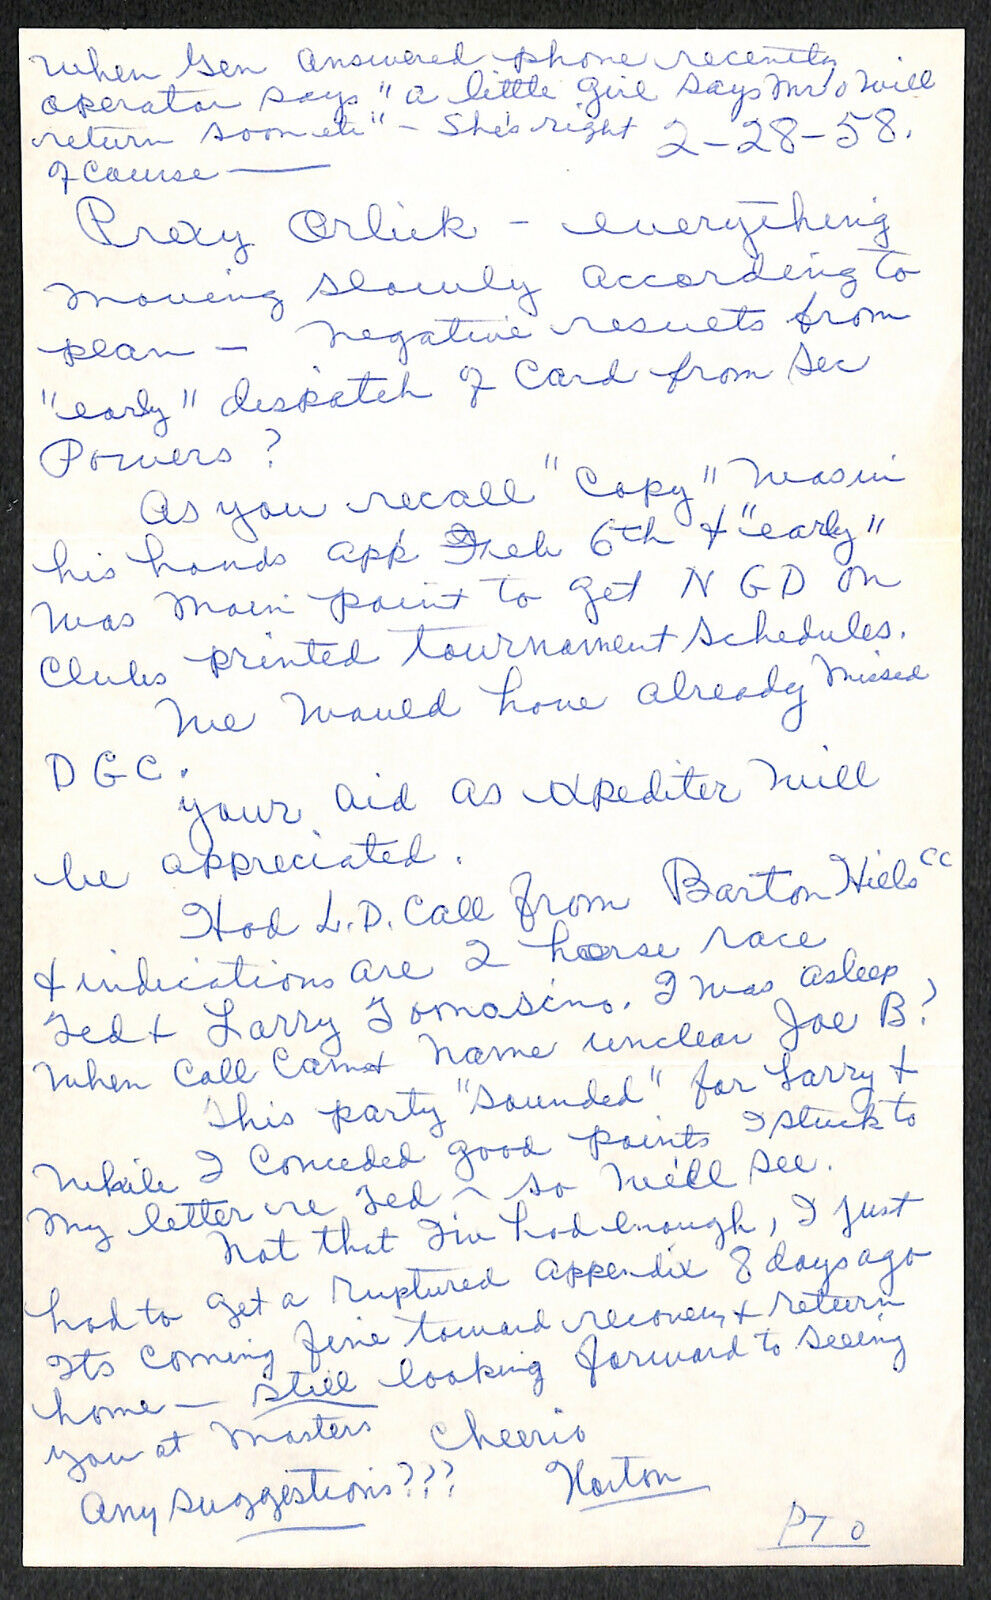 When Gen answered phone recently
operator says "a little girl says Mr O will
return soon etc" - She's right
2-28-58.
of course —
Prexy Orlick - everything
moving slowly according to
plan - negative results from
"early" dispatch of Card from Sec
Powers?
As you recall "Copy" was in
his hands app Feb 6th & "early"
was main point to get NGD on
Clubs printed tournament schedules.
We would have already missed
DGC.
your aid as xpediter will
be appreciated.
Had L.D. Call from Barton Hills CC
& indications are 2 horse race
Ted & Larry Tomasino. I was asleep
when call came & name unclear Joe B?
This party "sounded" for Larry &
while I conceded good points I stuck to
my letter re Ted - so we'll see.
Not that I've had enough, I just
had to get a ruptured appendix 8 days ago
Its coming fine toward recovery & return
home - still looking forward to seeing
you at Masters Cheerio
Any suggestions??? Horton
PTO